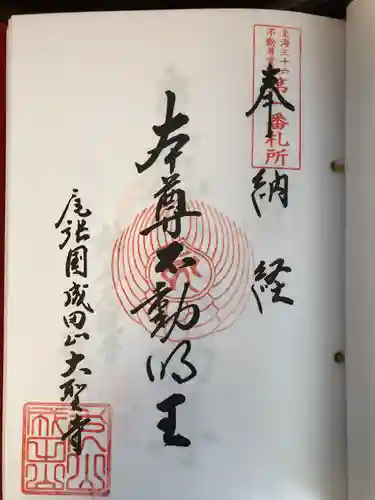 東海三十六
不動尊霊場
第一番札所
奉納経
本尊不動明王
尾張国成田山大聖寺